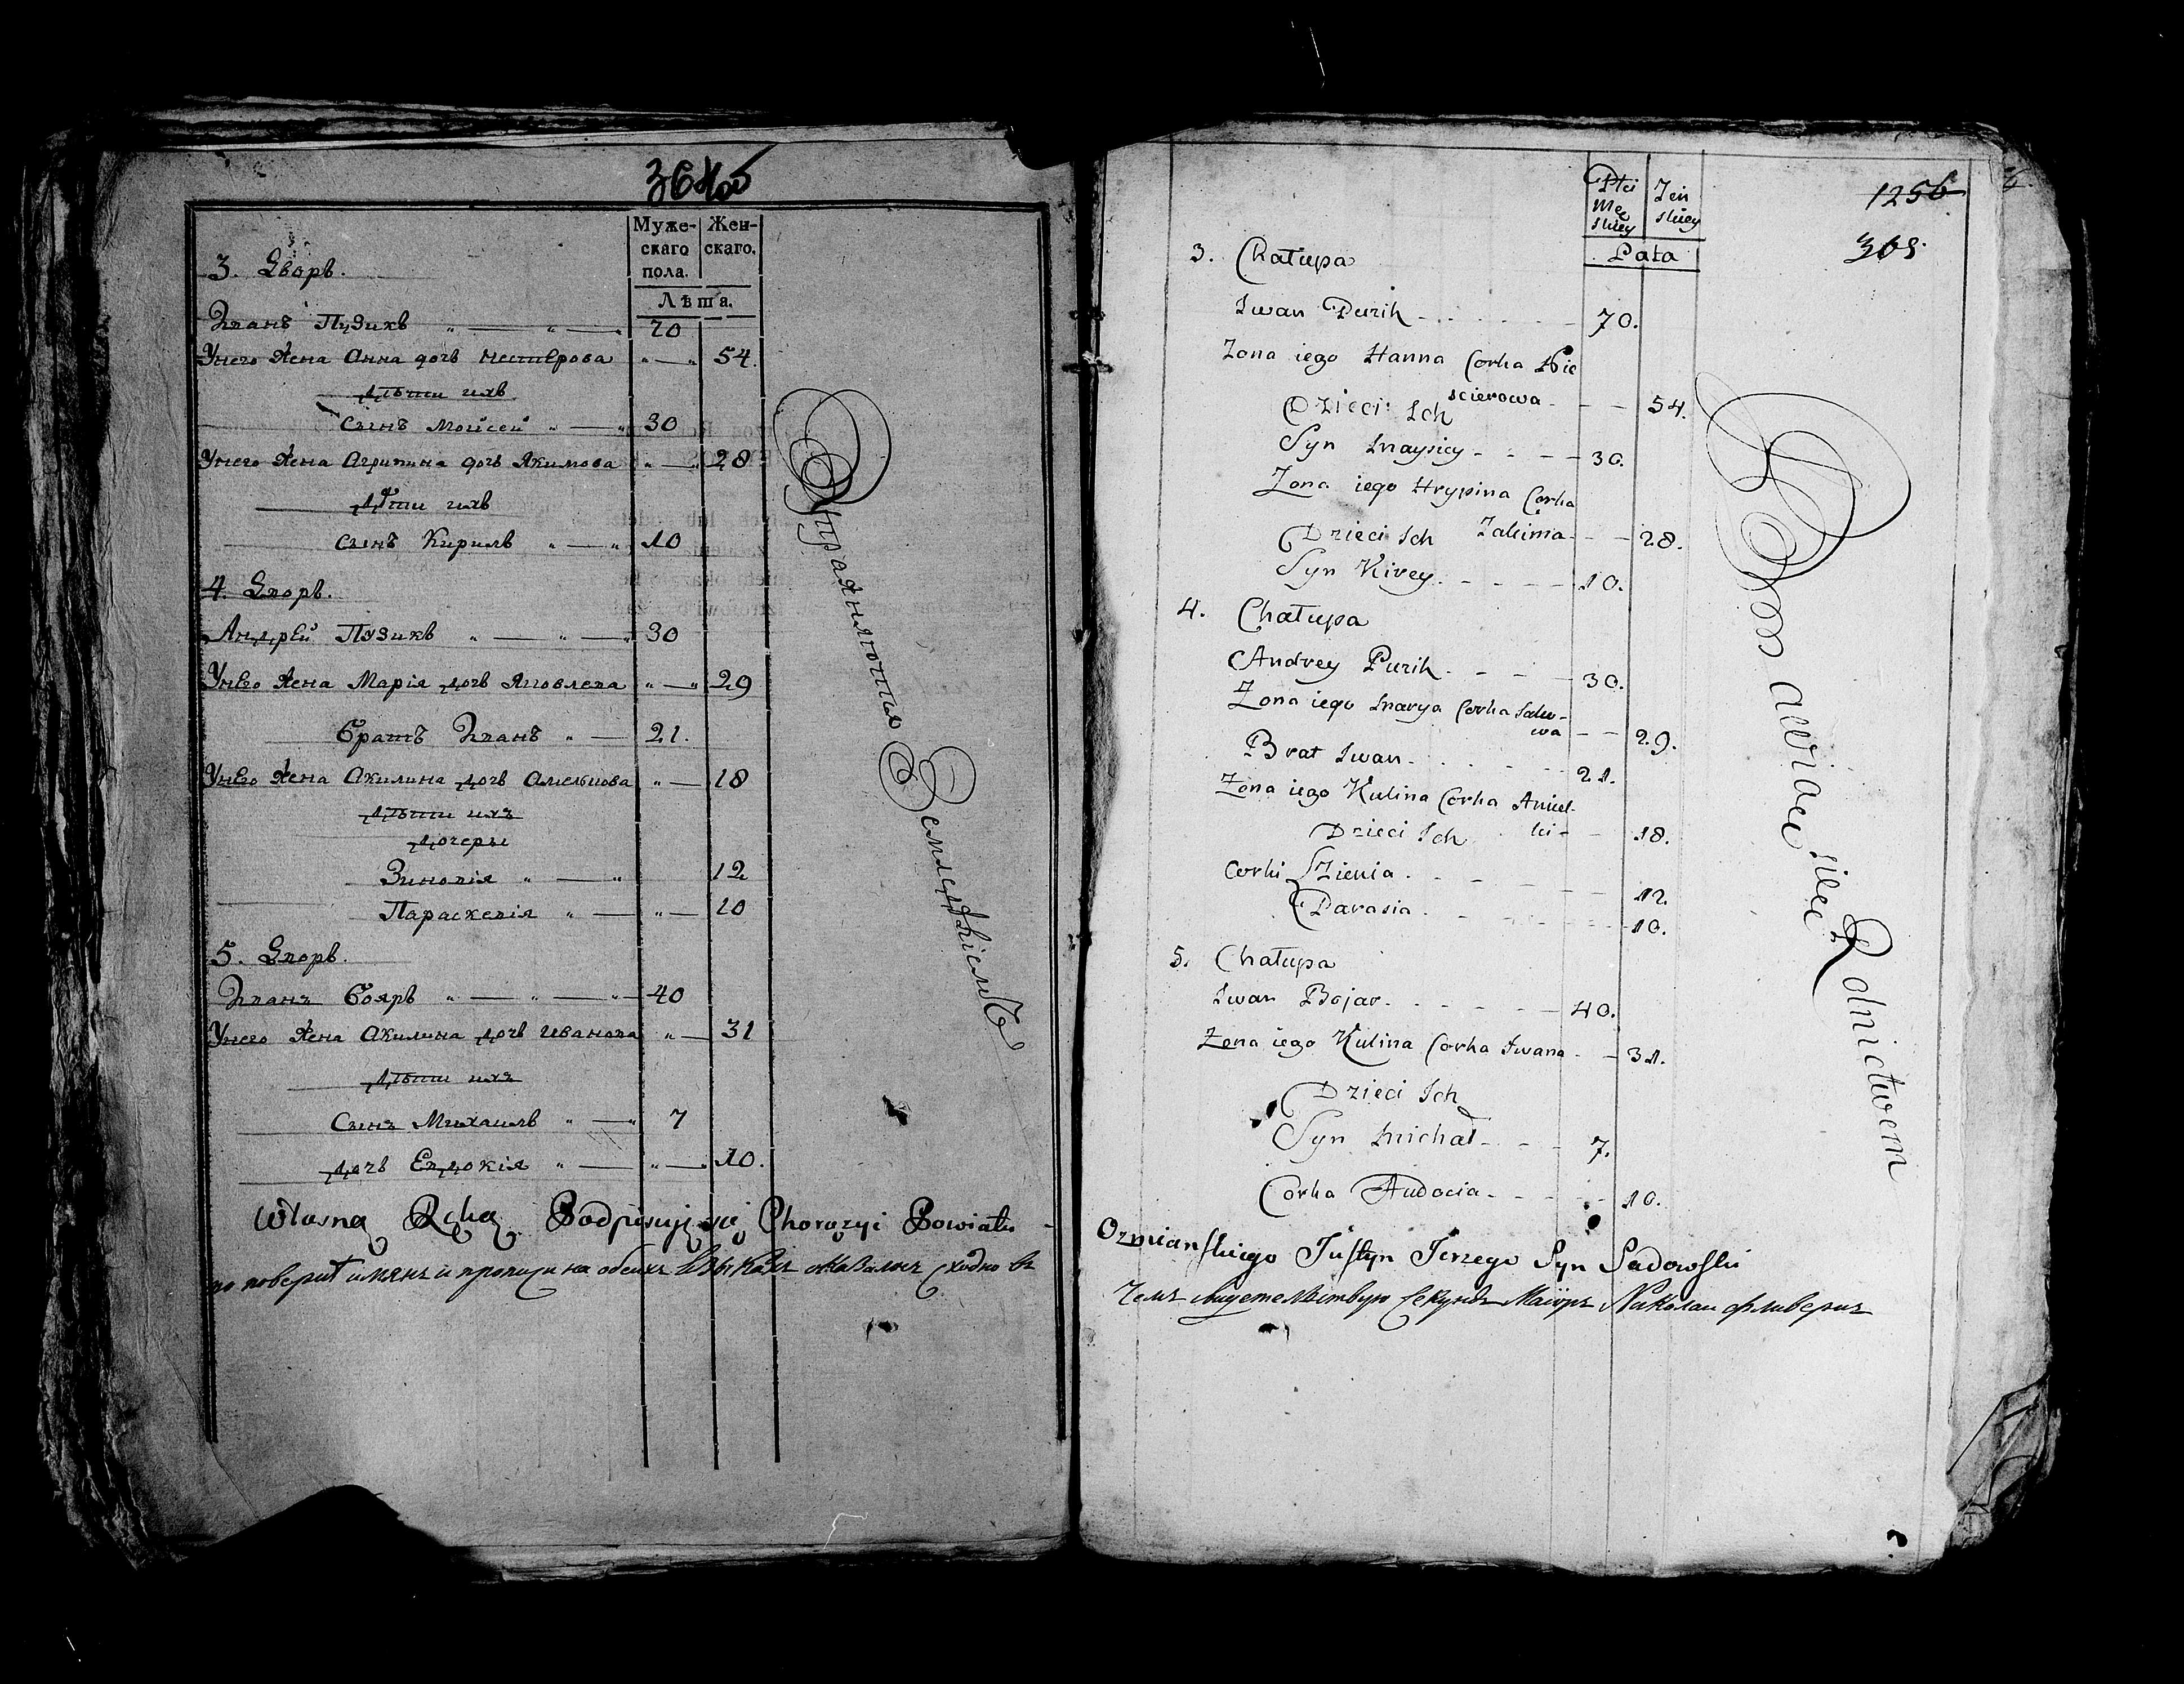 364об
Муже-
скаго
пола.
Жен-
скаго.
Лѣта.
3. Дворъ.
Иванъ Пузикъ " — " — " 70
Унего Жена Анна дочь Нестерова " — " 54.
Дѣти ихъ
Сынъ Мойсей " — " 30
Унего Жена Агрипина дочь Якимова " — " 28
Дѣти ихъ
Сынъ Кирилъ " — " 10
4. Дворъ.
Андрей Пузикъ " — " — " 30
Унего Жена Марія дочь Яковлева " — " 29
Братъ Иванъ " — 21.
Унего Жена Акилина дочь Амелькова " — 18
Дѣти ихъ
Дочеры
Зиновія " — " 12
Параскевія " — " — 10
5. Дворъ.
Иванъ Бояръ " — " — " — 40
Унего Жена Акилина дочь Иванова " — 31
Дѣти ихъ
Сынъ Михаилъ " — " 7
Дочь Евдокія " — " — " 10.
Упраяняютця Земледѣліемъ
Własną Ręką Podpisuję się Chorąży Powiatu
по поверке имянъ и прописи на обеихъ языкахъ оказалось сходно въ
Płci
Mę
skiey
Żeń
skiey
Lata
1256
365.
3. Chałupa
Iwan Puzik - - - - - 70.
Zona iego Hanna Corka Nie
scierowa - - - 54.
Dzieci Ich
Syn Maysiey - - - - 30.
Zona iego Hrypina Corka
Jakima - - - 28.
Dzieci Ich
Syn Kirey - - - - 10.
4. Chałupa
Andrey Puzik - - - - 30.
Zona iego Marya Corka Jako-
wa - - 29.
Brat Iwan - - - - 21.
Zona iego Kulina Corka Amiel-
ki - - 18.
Dzieci Ich
Corki Zienia - - - - - 12.
Parasia - - - - - 10.
5. Chałupa
Iwan Bojar - - - - - 40.
Zona iego Kulina Corka Iwana - - 31.
Dzieci Ich
Syn Michał - - - 7.
Corka Audocia - - - - 10.
Bawiące się Rolnictwem
Ozmianskiego Justyn Jerzego Syn Sadowski
Чемъ свидетелствую Секундъ Маіоръ Николаи